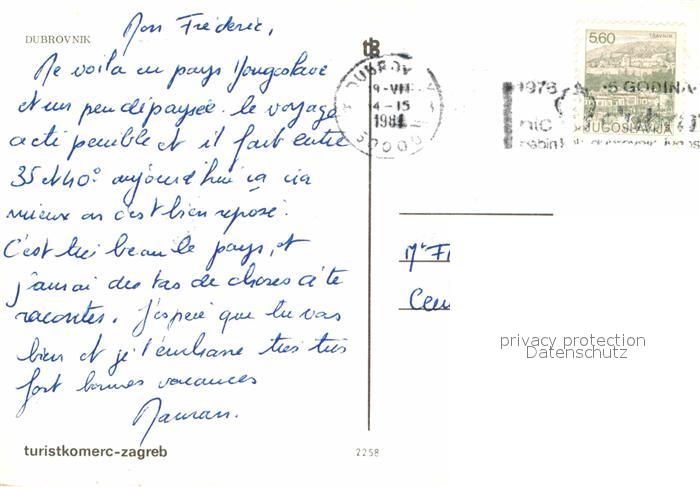 DUBROVNIK
Mon Frédéric,
Me voila en pays Yougoslave
et un peu dépaysée. le voyage
a été penible et il fait entre
35 et 40° aujourd'hui ça
mieux on s'est bien reposé.
C'est très beau le pays, et
j'aurai des tas de choses à te
raconter. J'espère que tu vas
bien et je t'embrasse très très
fort bonnes vacances
Maman.
turistkomerc-zagreb
2258
tk
DUBROV
9-VII
4-15
1976
5 GODINA
5,60
TRAVNIK
JUGOSLAVIJA
Mr Fr
Cen
privacy protection
Datenschutz